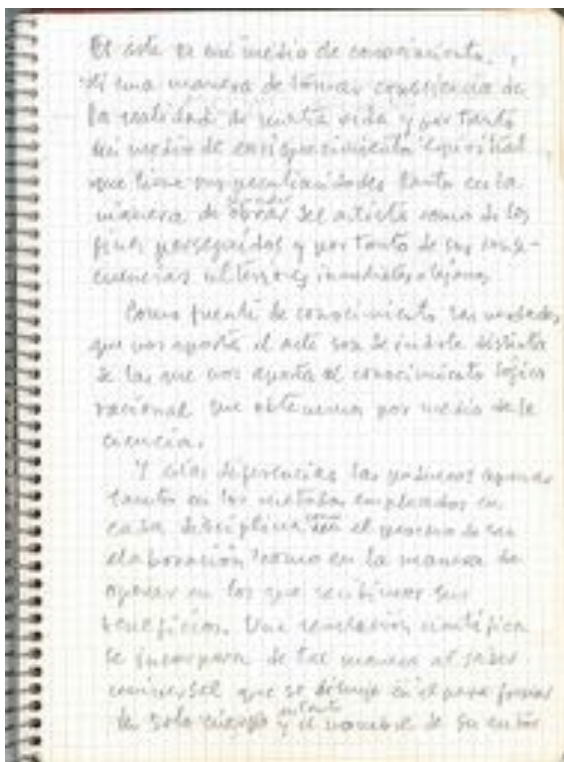 El arte es un medio de conocimiento,
es una manera de tomar consciencia de
la realidad de nuestra vida y por tanto
un medio de enriquecimiento espiritual,
que tiene sus peculiaridades tanto en la
manera de obrar del artista como de los
fines perseguidos y por tanto de sus conse-
cuencias ulteriores inmediatas o lejanas
Como fuente de conocimiento las verdades
que nos aporta el arte son de índole distinta
de las que nos aporta el conocimiento lógico
racional que obtenemos por medio de la
ciencia.
Y estas diferencias las podemos
tanto en los métodos empleados en
cada disciplina en el proceso de su
elaboración como en la manera de
operar en los que recibimos sus
beneficios. Una revelación científica
se incorpora de tal manera al saber
universal que se diluye en él para formar
un solo cuerpo y el nombre de su autor